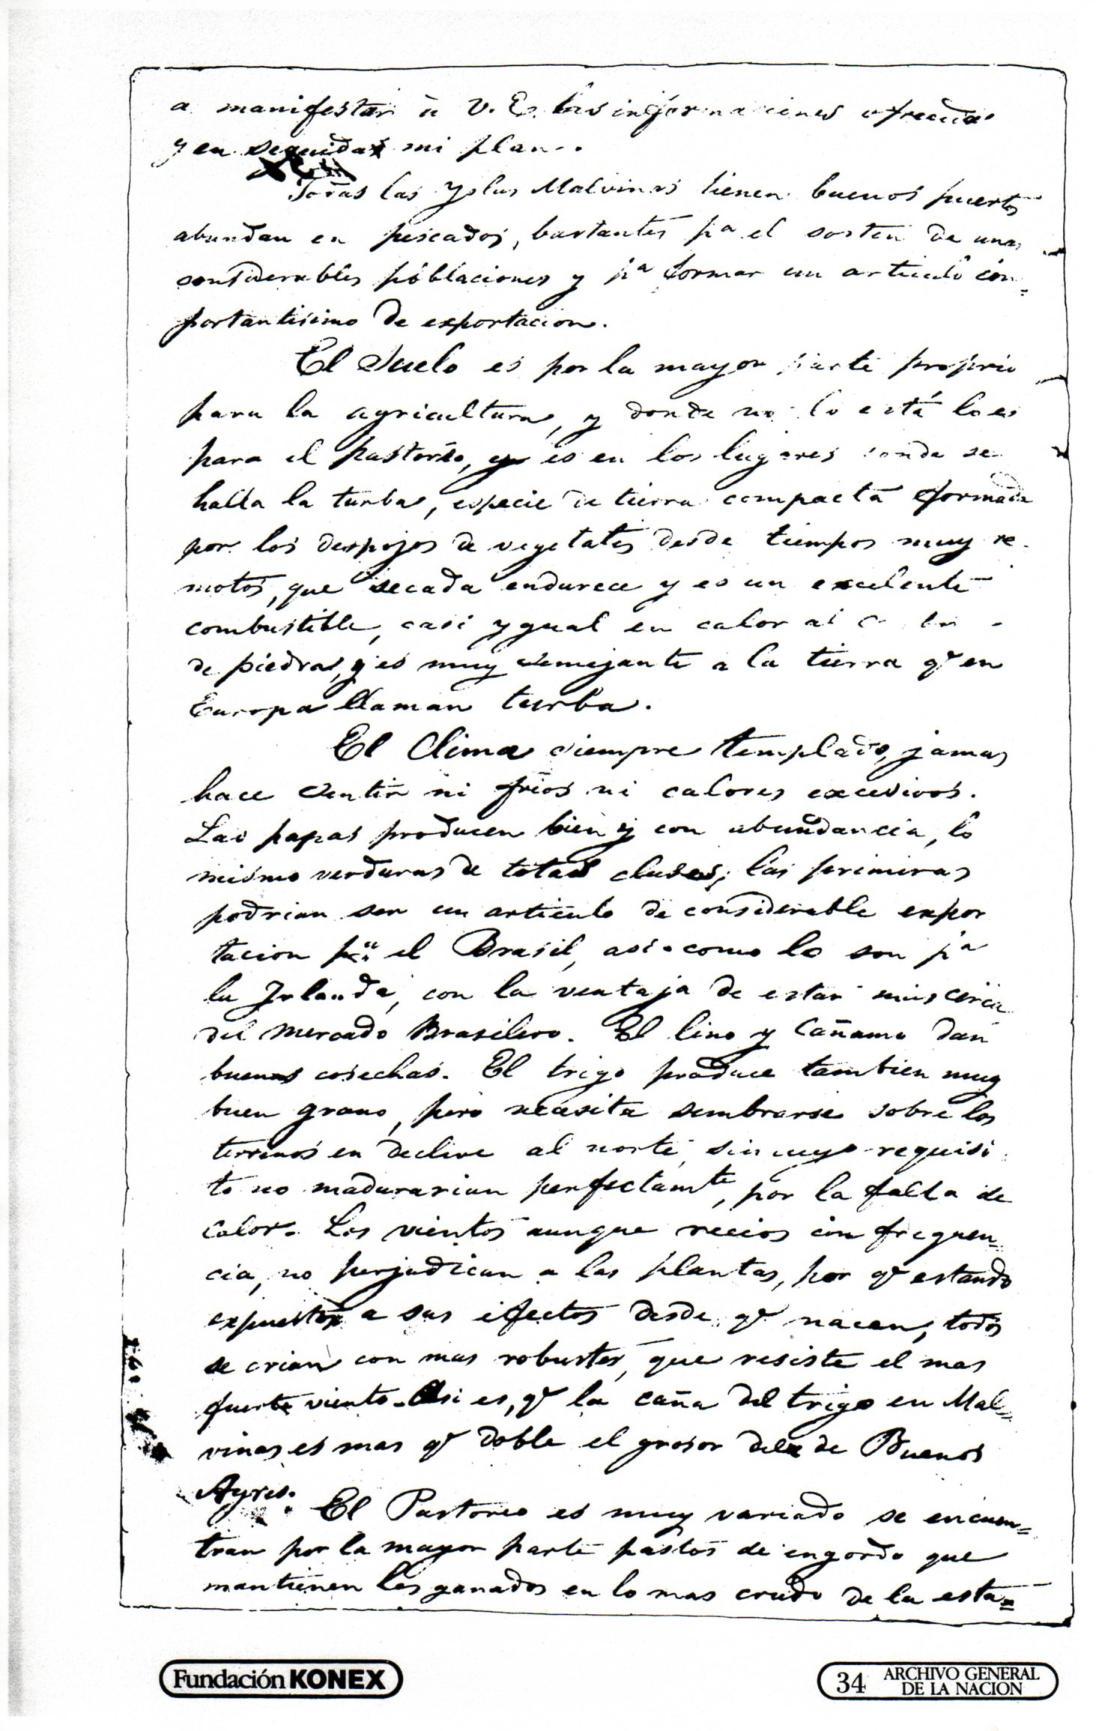 a manifestar a V. E. las informaciones ofrecidas
y en seguida mi plan.
Todas las Yslas Malvinas tienen buenos puertos
abundan en pescados, bastantes pa el sosten de unas
considerables poblaciones y pa formar un articulo im=
portantisimo de exportacion.
El Suelo es por la mayor parte proprio
para la agricultura, y donde no lo está lo es
para el pastoréo, y es en los lugares donde se
halla la turba, especie de tierra compacta formada
por los despojos de vegetales desde tiempos muy re
motos, que secada endurece y es un excelente
combustible, casi ygual en calor al
de piedra, y es muy semejante a la tierra qe en
Europa llaman turba.
El Clima siempre templado, jamas
hace sentir ni frios ni calores excesivos.
Las papas producen bien y con abundancia, lo
mismo verduras de todas clases; las primeras
podrian ser un articulo de considerable expor
tacion pa el Brasil, asi como lo son pa
la Jrlanda, con la ventaja de estar mas cerca
del mercado Brasilero. El lino y Cañamo dan
buenas cosechas. El trigo produce tambien muy
buen grano, pero necesita sembrarse sobre los
terrenos en declive al norte, sin cuyo requisi
to no madurarian perfectamte, por la falta de
calor. Los vientos aunque recios con frequen=
cia, no perjudican a las plantas, por qe estando
expuestas a sus efectos desde qe nacen, todos
se crian con mas robustes, que resiste el mas
fuerte viento. Asi es, qe la caña del trigo en Mal=
vinas es mas qe doble el grosor dela de Buenos
Ayres.
El Pastoreo es muy variado se encuen=
tran por la mayor parte pastos de engordo que
mantienen los ganados en lo mas crudo de la esta=
Fundación KONEX
34 ARCHIVO GENERAL
DE LA NACION